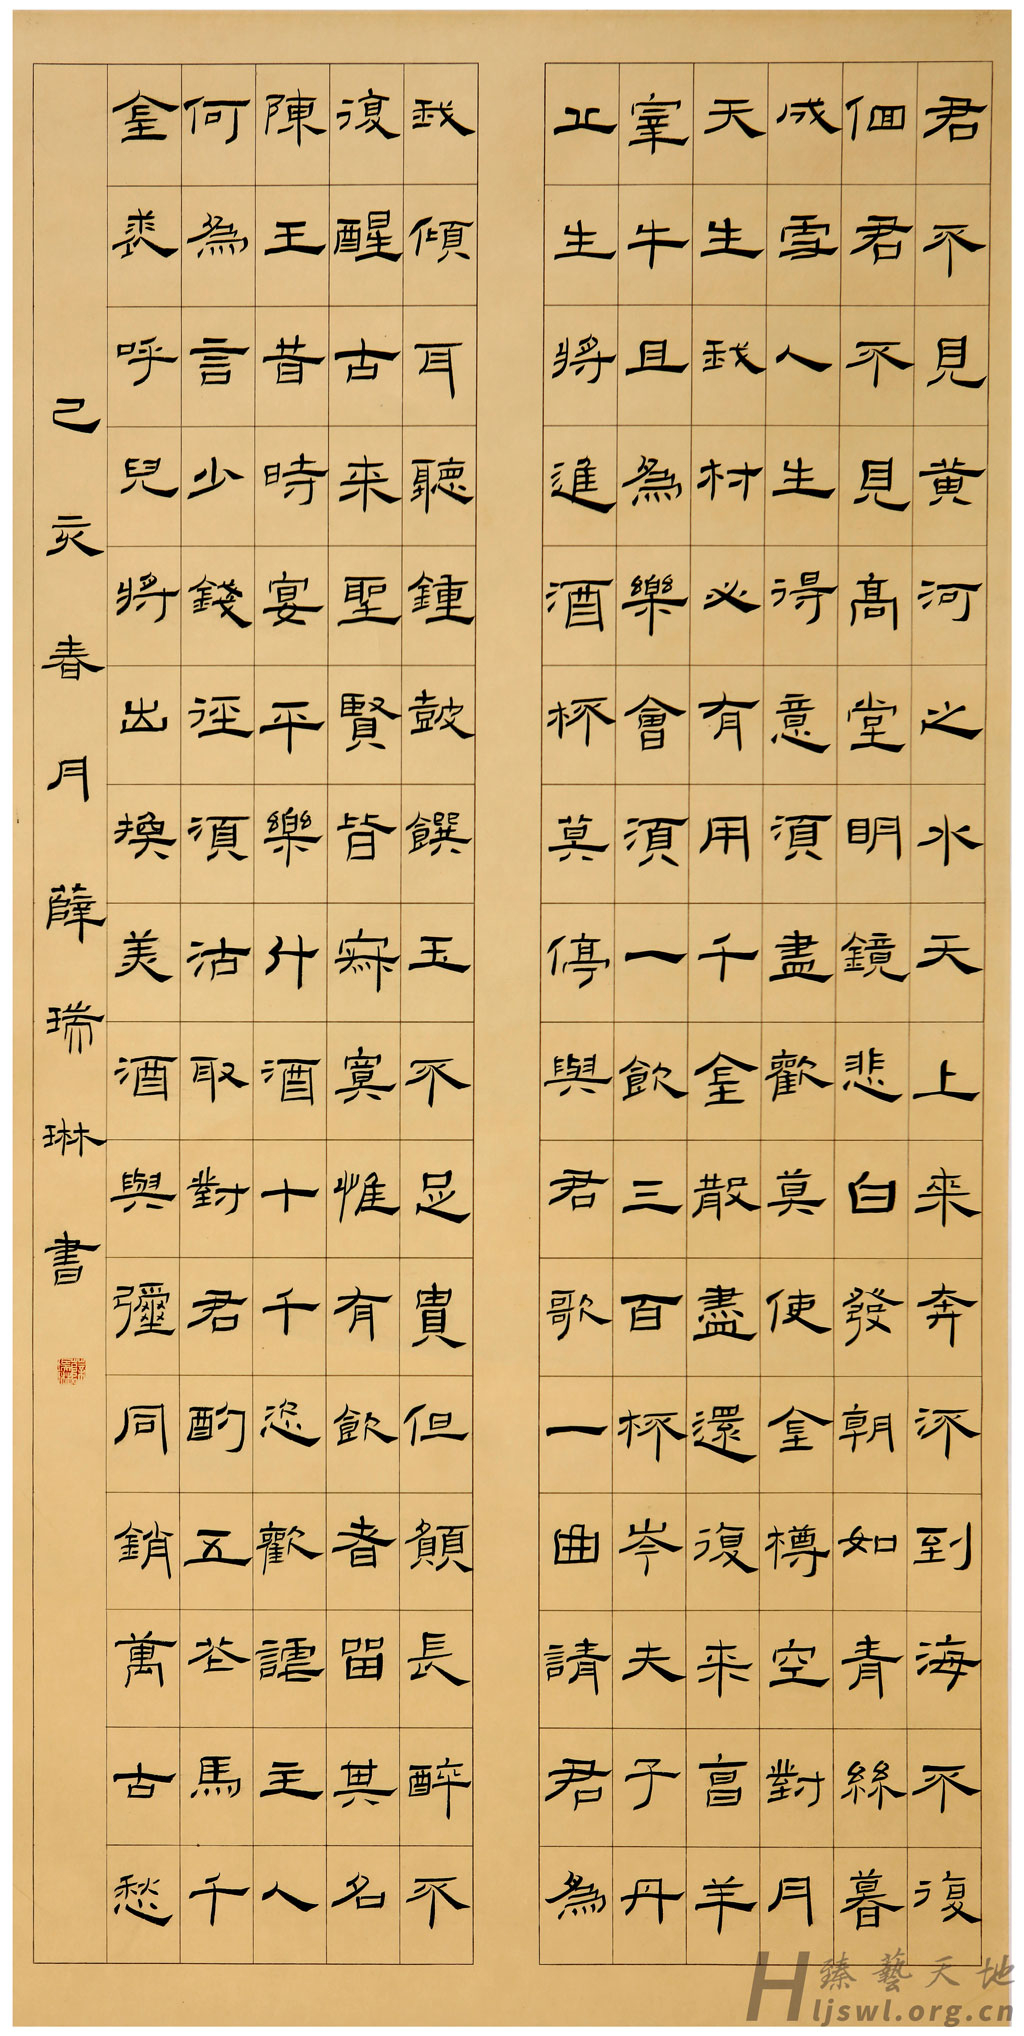 君不見黃河之水天上來奔流到海不復
佪君不見高堂明鏡悲白發朝如青絲暮
成雪人生得意須盡歡莫使金樽空對月
天生我材必有用千金散盡還復來亯羊
宰牛且為樂會須一飲三百杯岑夫子丹
丘生將進酒杯莫停與君歌一曲請君為
我傾耳聽鍾鼓饌玉不足貴但願長醉不
復醒古來聖賢皆寂寞惟有飲者留其名
陳王昔時宴平樂斗酒十千恣歡謔主人
何為言少錢徑須沽取對君酌五花馬千
金裘呼兒將出換美酒與彌同銷萬古愁
己亥春月薛瑞琳書
臻藝天地
Hljswl.org.cn